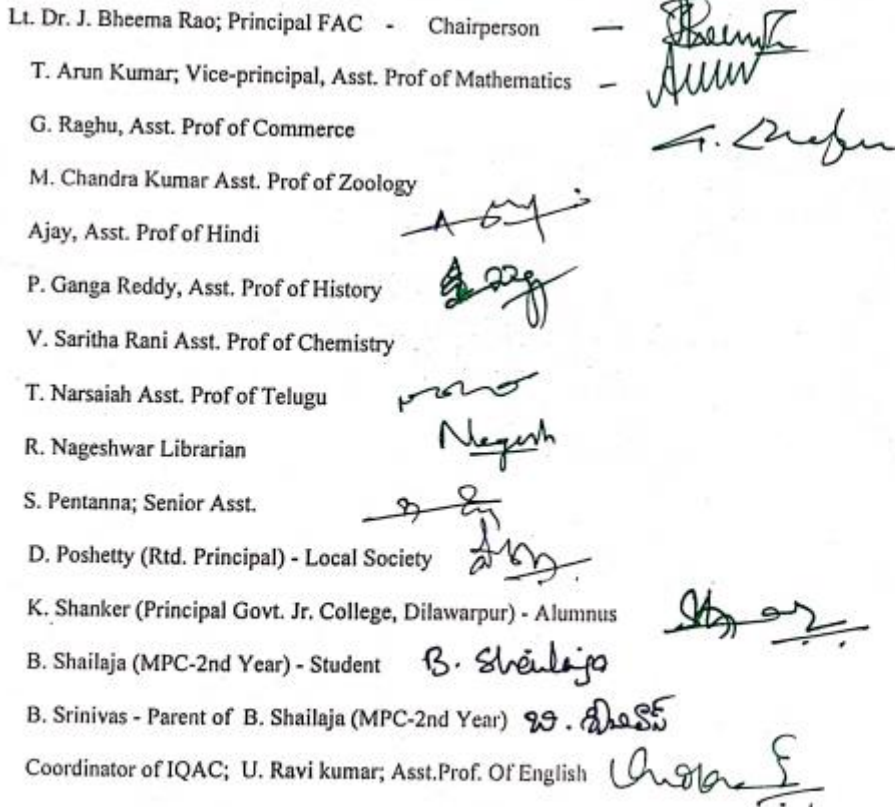 Lt. Dr. J. Bheema Rao; Principal FAC - Chairperson —
T. Arun Kumar; Vice-principal, Asst. Prof of Mathematics –
G. Raghu, Asst. Prof of Commerce
M. Chandra Kumar Asst. Prof of Zoology
Ajay, Asst. Prof of Hindi
P. Ganga Reddy, Asst. Prof of History
V. Saritha Rani Asst. Prof of Chemistry
T. Narsaiah Asst. Prof of Telugu
R. Nageshwar Librarian Nagesh
S. Pentanna; Senior Asst.
D. Poshetty (Rtd. Principal) - Local Society
K. Shanker (Principal Govt. Jr. College, Dilawarpur) - Alumnus
B. Shailaja (MPC-2nd Year) - Student B. Shailaja
B. Srinivas - Parent of B. Shailaja (MPC-2nd Year)
Coordinator of IQAC; U. Ravi kumar; Asst.Prof. Of English